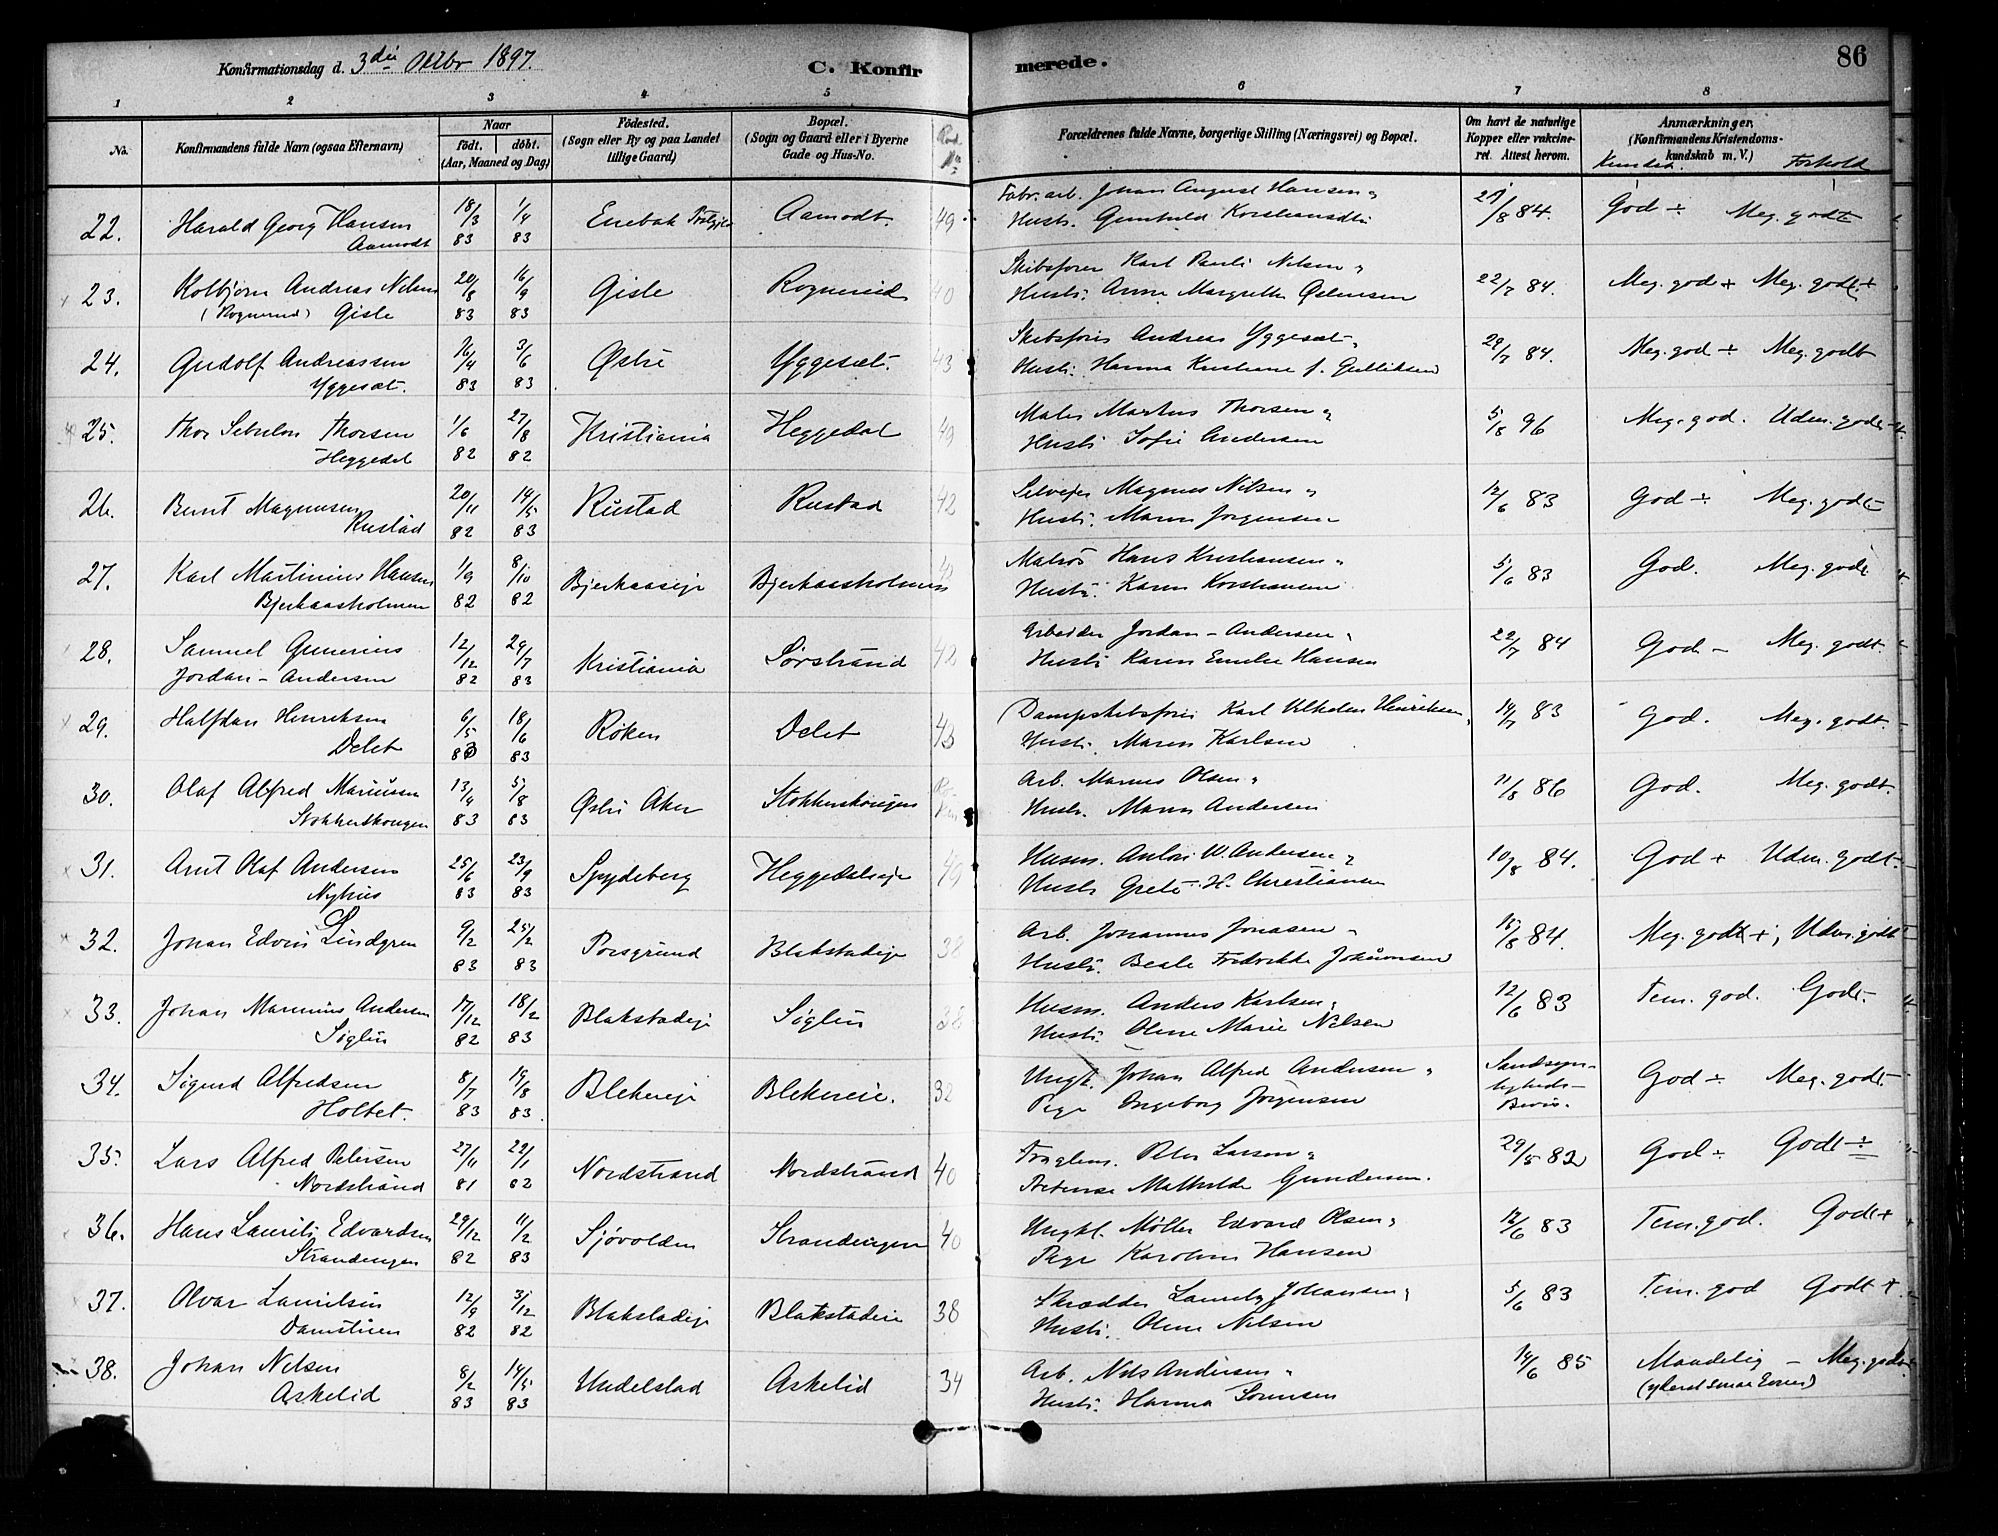 Konfirmationsdag d. 3die Oktbr 1897.
C. Konfirmerede.
86
1 2 3 4 5 6 7 8
No.
Konfirmandens fulde Navn (ogsaa Efternavn)
Naar
født. døbt.
(Aar, Maaned og Dag)
Fødested.
(Sogn eller By og paa Landet
tillige Gaard)
Bopæl.
(Sogn og Gaard eller i Byerne
Gade og Hus-No.
Forældrenes fulde Navne, borgerlige Stilling (Næringsvei) og Bopæl.
Om havt de naturlige
Kopper eller vakcine-
ret. Attest herom.
Anmærkninger.
(Konfirmandens Kristendoms-
kundskab m. V.)
Kundsk. Forhold
22. Harald Georg Hansen 18/3 1/4 Enebak Aamodt. 49 Fabr. arb. Johan August Hansen 21/8 84. God ÷ Meg. godt
Aamodt 83 83 Hustr. Gunhild Kristiansdtr
23. Kolbjørn Andreas Nilsen 20/8 16/9 Gisle Rognerud 40 Skibsfører Karl Pauli Nilsen 22/7 84. Meg. god + Meg. godt +
(Rognerud) Gisle 83 83 Hustr. Anne Margrethe Østensen
24. Gudolf Andreassen 16/4 3/6 Østre Yggesæt. 43 Skibsfører Andreas Yggesæt 29/7 84. Meg. god ÷ Meg. godt
Yggesæt. 83 83 Hustr. Hanna Kristiane f. Gulliksen
25. Thor Sebulon Thorsen 1/6 27/8 Kristiania Heggedal 49 Maler Martus Thorsen 5/8 96 Meg. god. Udm. godt
Heggedal 82 82 Hustr. Sofie Andersen
26. Bernt Magnussen 20/11 14/5 Rustad Rustad 42 Selveier Magnus Nilsen 12/6 83 God ÷ Meg. godt
Rustad 82 83 Hustr. Maren Jørgensen
27. Karl Martinius Hansen 1/9 8/10 Bjerkaaseje Bjerkaasholmen Matros Hans Kristiansen 5/6 83 God. Meg. godt
Bjerkaasholmen 82 82 Hustr. Karen Kristiansen
28. Samuel Gunerius 12/12 29/7 Kristiania Sørstrand 42 Arbeider Jordan-Andersen 22/7 84 God - Meg. godt.
Jordan-Andersen 82 83 Hustr. Karen Emilie Hansen
29. Halfdan Henriksen 6/5 18/6 Røken Delet 43 Dampskibsfører Karl Vilhelm Henriksen 14/7 83 God. Meg. godt.
Delet 83 83 Hustr. Maren Karlsen
30. Olaf Alfred Mariussen 13/4 5/8 Østre Aker Stokkerskougen Arb. Marius Olsen 11/8 86 God. Meg. godt.
Stokkerskougen 83 83 Hustr. Maren Andersen
31. Arnt Olaf Andersen 25/6 23/9 Spydeberg Heggedalseje 49 Husm. Anton W. Andersen 10/8 84. God + Udm. godt
Nyhus 83 83 Hustr. Grete H. Christiansen
32. Johan Edvin Lindgren 9/2 25/2 Porsgrund Blakstadeje 38 Arb. Johannes Jonasen 15/8 84. Meg. godt +, Udm. godt
83 83 Hustr. Beate Fredrikke Johannsen
33. Johan Marinius Andersen 17/12 18/2 Blakstadeje Søglen 38 Husm. Anders Karlsen 12/6 83 Tem. god. Godt.
Søglen 82 83 Hustr. Oline Marie Nilsen
34. Sigurd Alfredsen 8/7 19/8 Blekereje Blekereie. 32 Ungk. Johan Alfred Andersen Sandsyn-
ligheds-
Bevis. God ÷ Meg. godt.
Holtet. 83 83 Pige Ingeborg Jørgensen
35. Lars Alfred Petersen 27/11 22/1 Nordstrand Nordstrand 40 Peter Larsen 29/5 82 God ÷ Godt ÷
Nordstrand 81 82 Mathilde Gundersen.
36. Hans Laurits Edvardsen 29/12 11/2 Sjøvolden Strandengen 40 Ungk. Møller Edvard Olsen 12/6 83 Tem. god. Godt +
Strandengen 82 83 Pige Karoline Hansen
37. Olvar Lauritsen 12/9 3/12 Blakstadeje Blakstadeie 38 Skrædder Laurits Johansen 5/6 83 Tem. god Godt +
Damstuen 82 82 Hustr. Oline Nilsen
38. Johan Nilsen 8/2 14/5 Undelstad Askelid 34 Arb. Nils Andersen 14/6 85 Maadelig - Meg. godt
Askelid 83 83 Hustr. Hanna Sørensen (yderst smaa Evner)